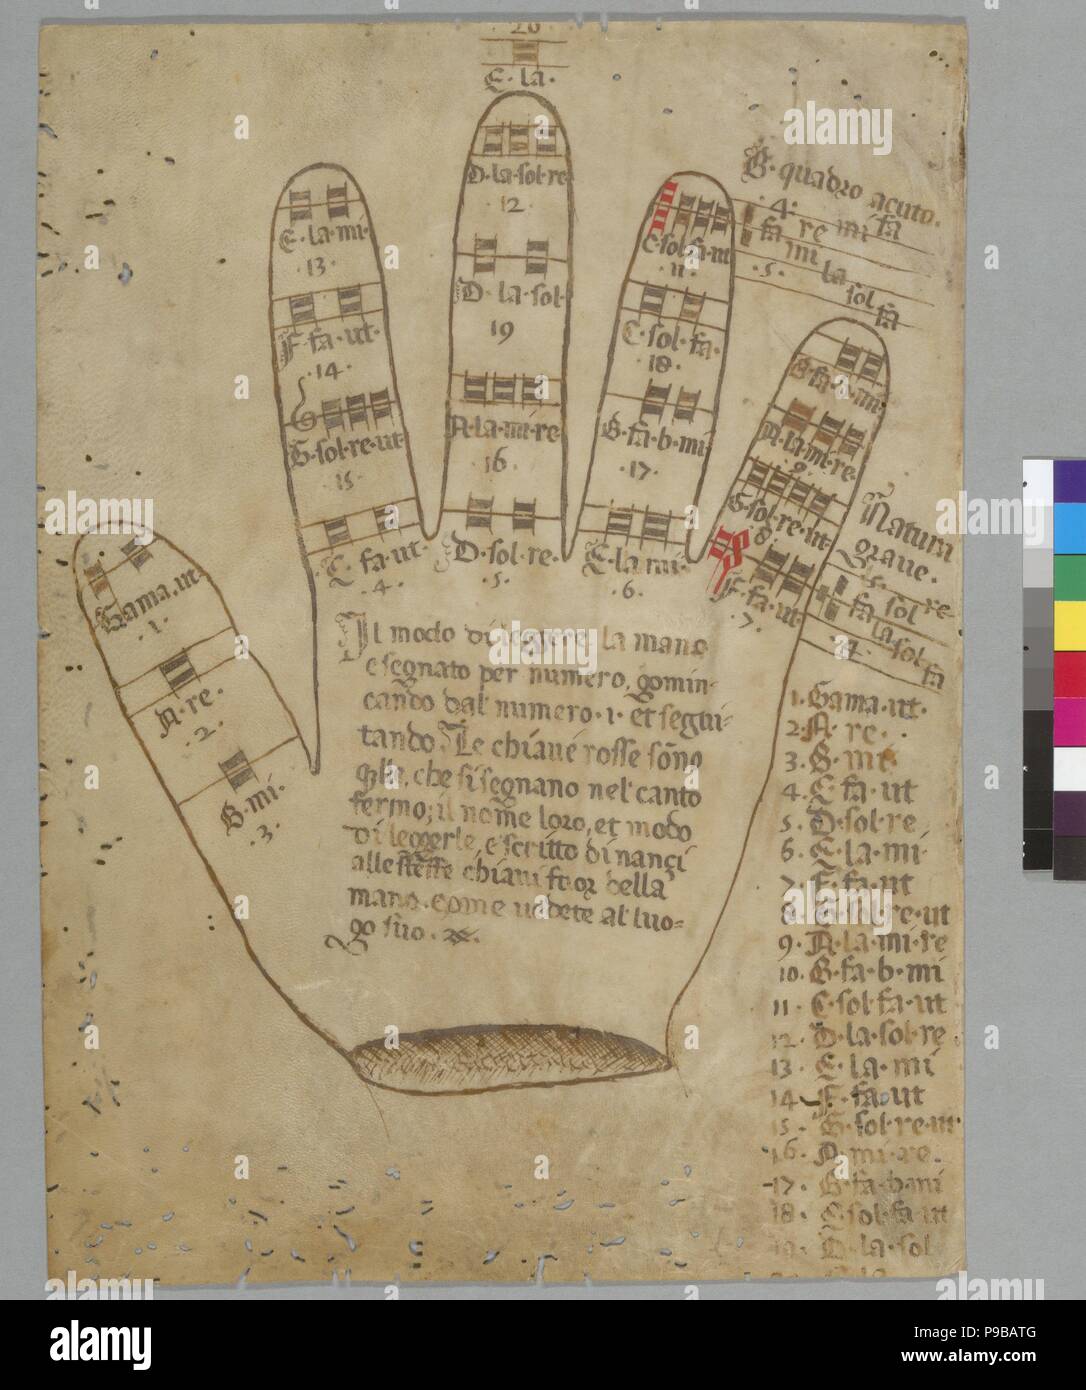 20
E · la ·
D · la · sol · re
· 12 ·
D · la · sol ·
19
A · la · mi · re
16 ·
D · sol · re ·
· 5 ·
E · la · mi ·
· 13 ·
F · fa · ut ·
· 14 ·
G · sol · re · ut ·
· 15 ·
C · fa · ut ·
· 4 ·
C · sol · fa · ut
· 11 ·
C · sol · fa ·
· 18 ·
B · fa · b · mi
· 17 ·
E · la · mi ·
· 6 ·
B · fa · b · mi ·
A · la · mi · re ·
9 ·
G · sol · re · ut ·
8 ·
F · fa · ut ·
· 7 ·
Gama · ut ·
· 1 ·
A · re ·
· 2 ·
B · mi ·
· 3 ·
B · quadro acuto ·
· 4 ·
fa re mi fa
fa mi la sol fa
· 5 ·
Natura
graue ·
5 ·
fa sol re
fa la sol fa
· 4 ·
Il modo di leggere la mano
e segnato per numero, gomin=
cando dal numero · 1 · et segui=
tando. Le chiaue rosse sōno
q̄lle, che si segnano nel canto
fermo; il nome loro, et modo
di leggerle, e scritto dinançi
alle stesse chiaui fuor della
mano, come uedete al luo=
go suo ·
1. Gama · ut ·
2. A · re ·
3. B · mi
4. C · fa · ut
5. D · sol · re
6. E · la · mi
7. F · fa · ut
8. G · sol · re · ut
9. A · la · mi · re
10. B · fa · b · mi
11. C · sol · fa · ut
12. D · la · sol · re
13. E · la · mi
14. F · fa · ut
15. G · sol · re · ut
16. A · mi · re ·
17. B · fa · b · mi
18. C · sol · fa · ut
19. D · la · sol
alamy
Image ID: P9BATG
www.alamy.com